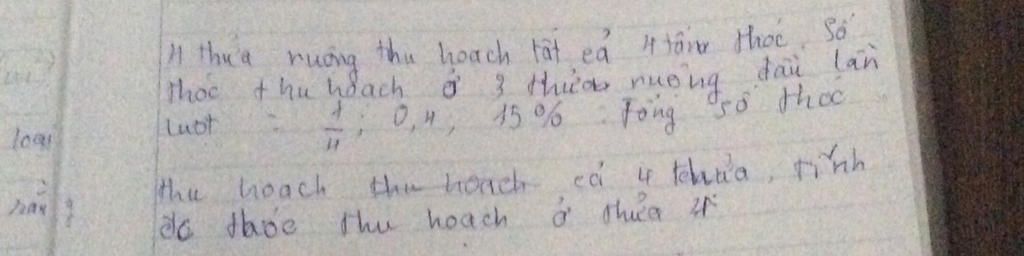 4 thửa ruộng thu hoạch tất cả 4 tấn thóc. Số
thóc thu hoạch ở 3 thửa ruộng đầu lần
lượt = 1/4; 0,4; 15% tổng số thóc
loại
thu hoạch thu hoạch cả 4 thửa. Tính
thóc thu hoạch ở thửa 4